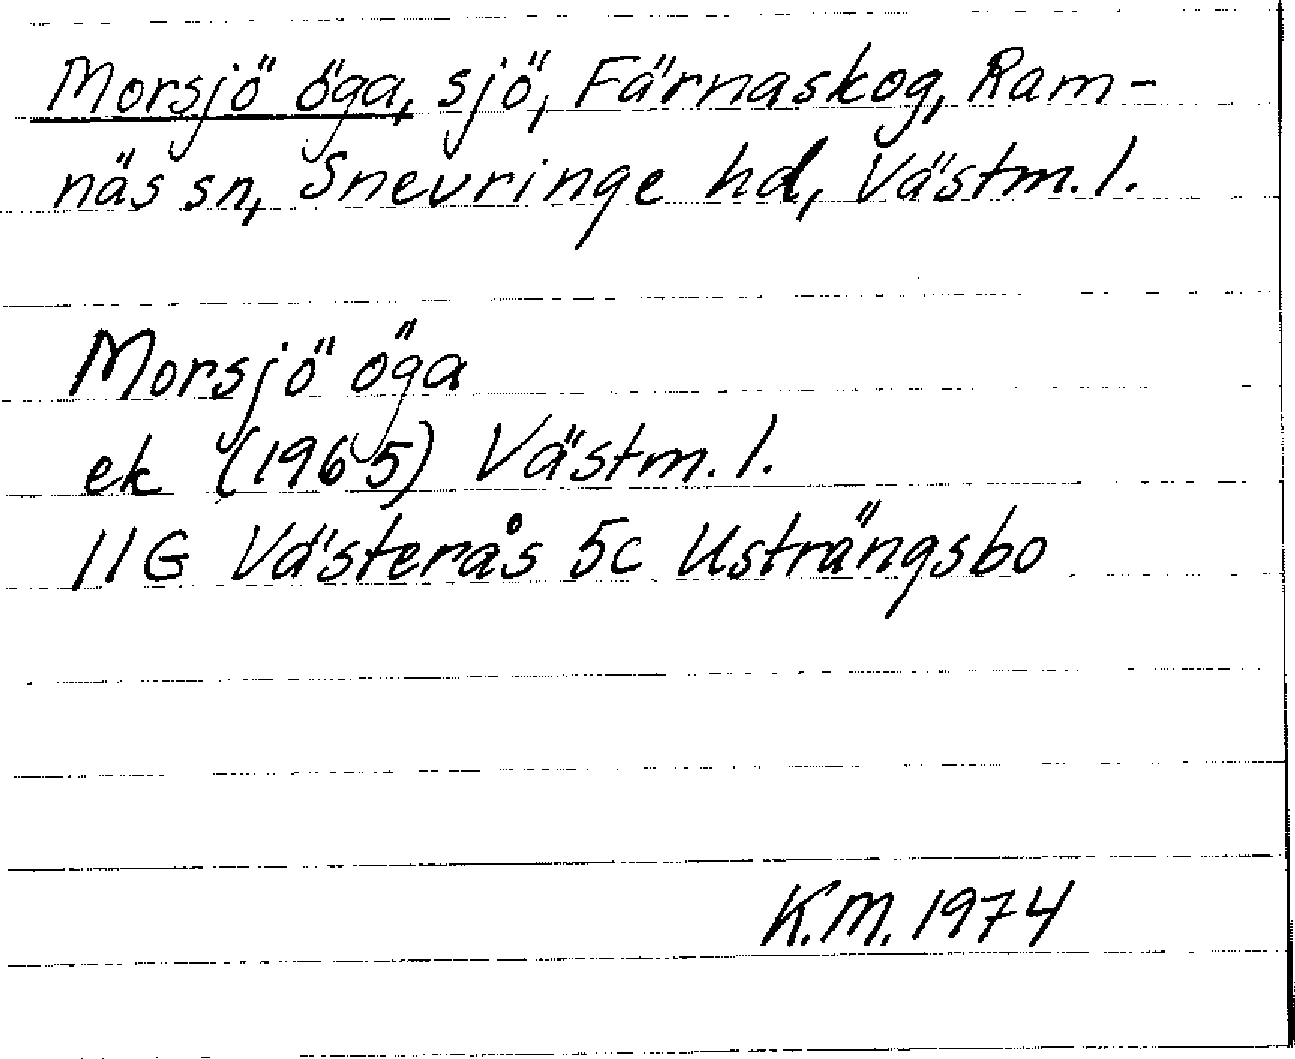 Morsjö öga, sjö, Färnaskog, Ram-
näs sn, Snevringe hd, Västm. l.
Morsjö öga
ek (1965) Västm. l.
11G Västerås 5c Usträngsbo
K.M. 1974